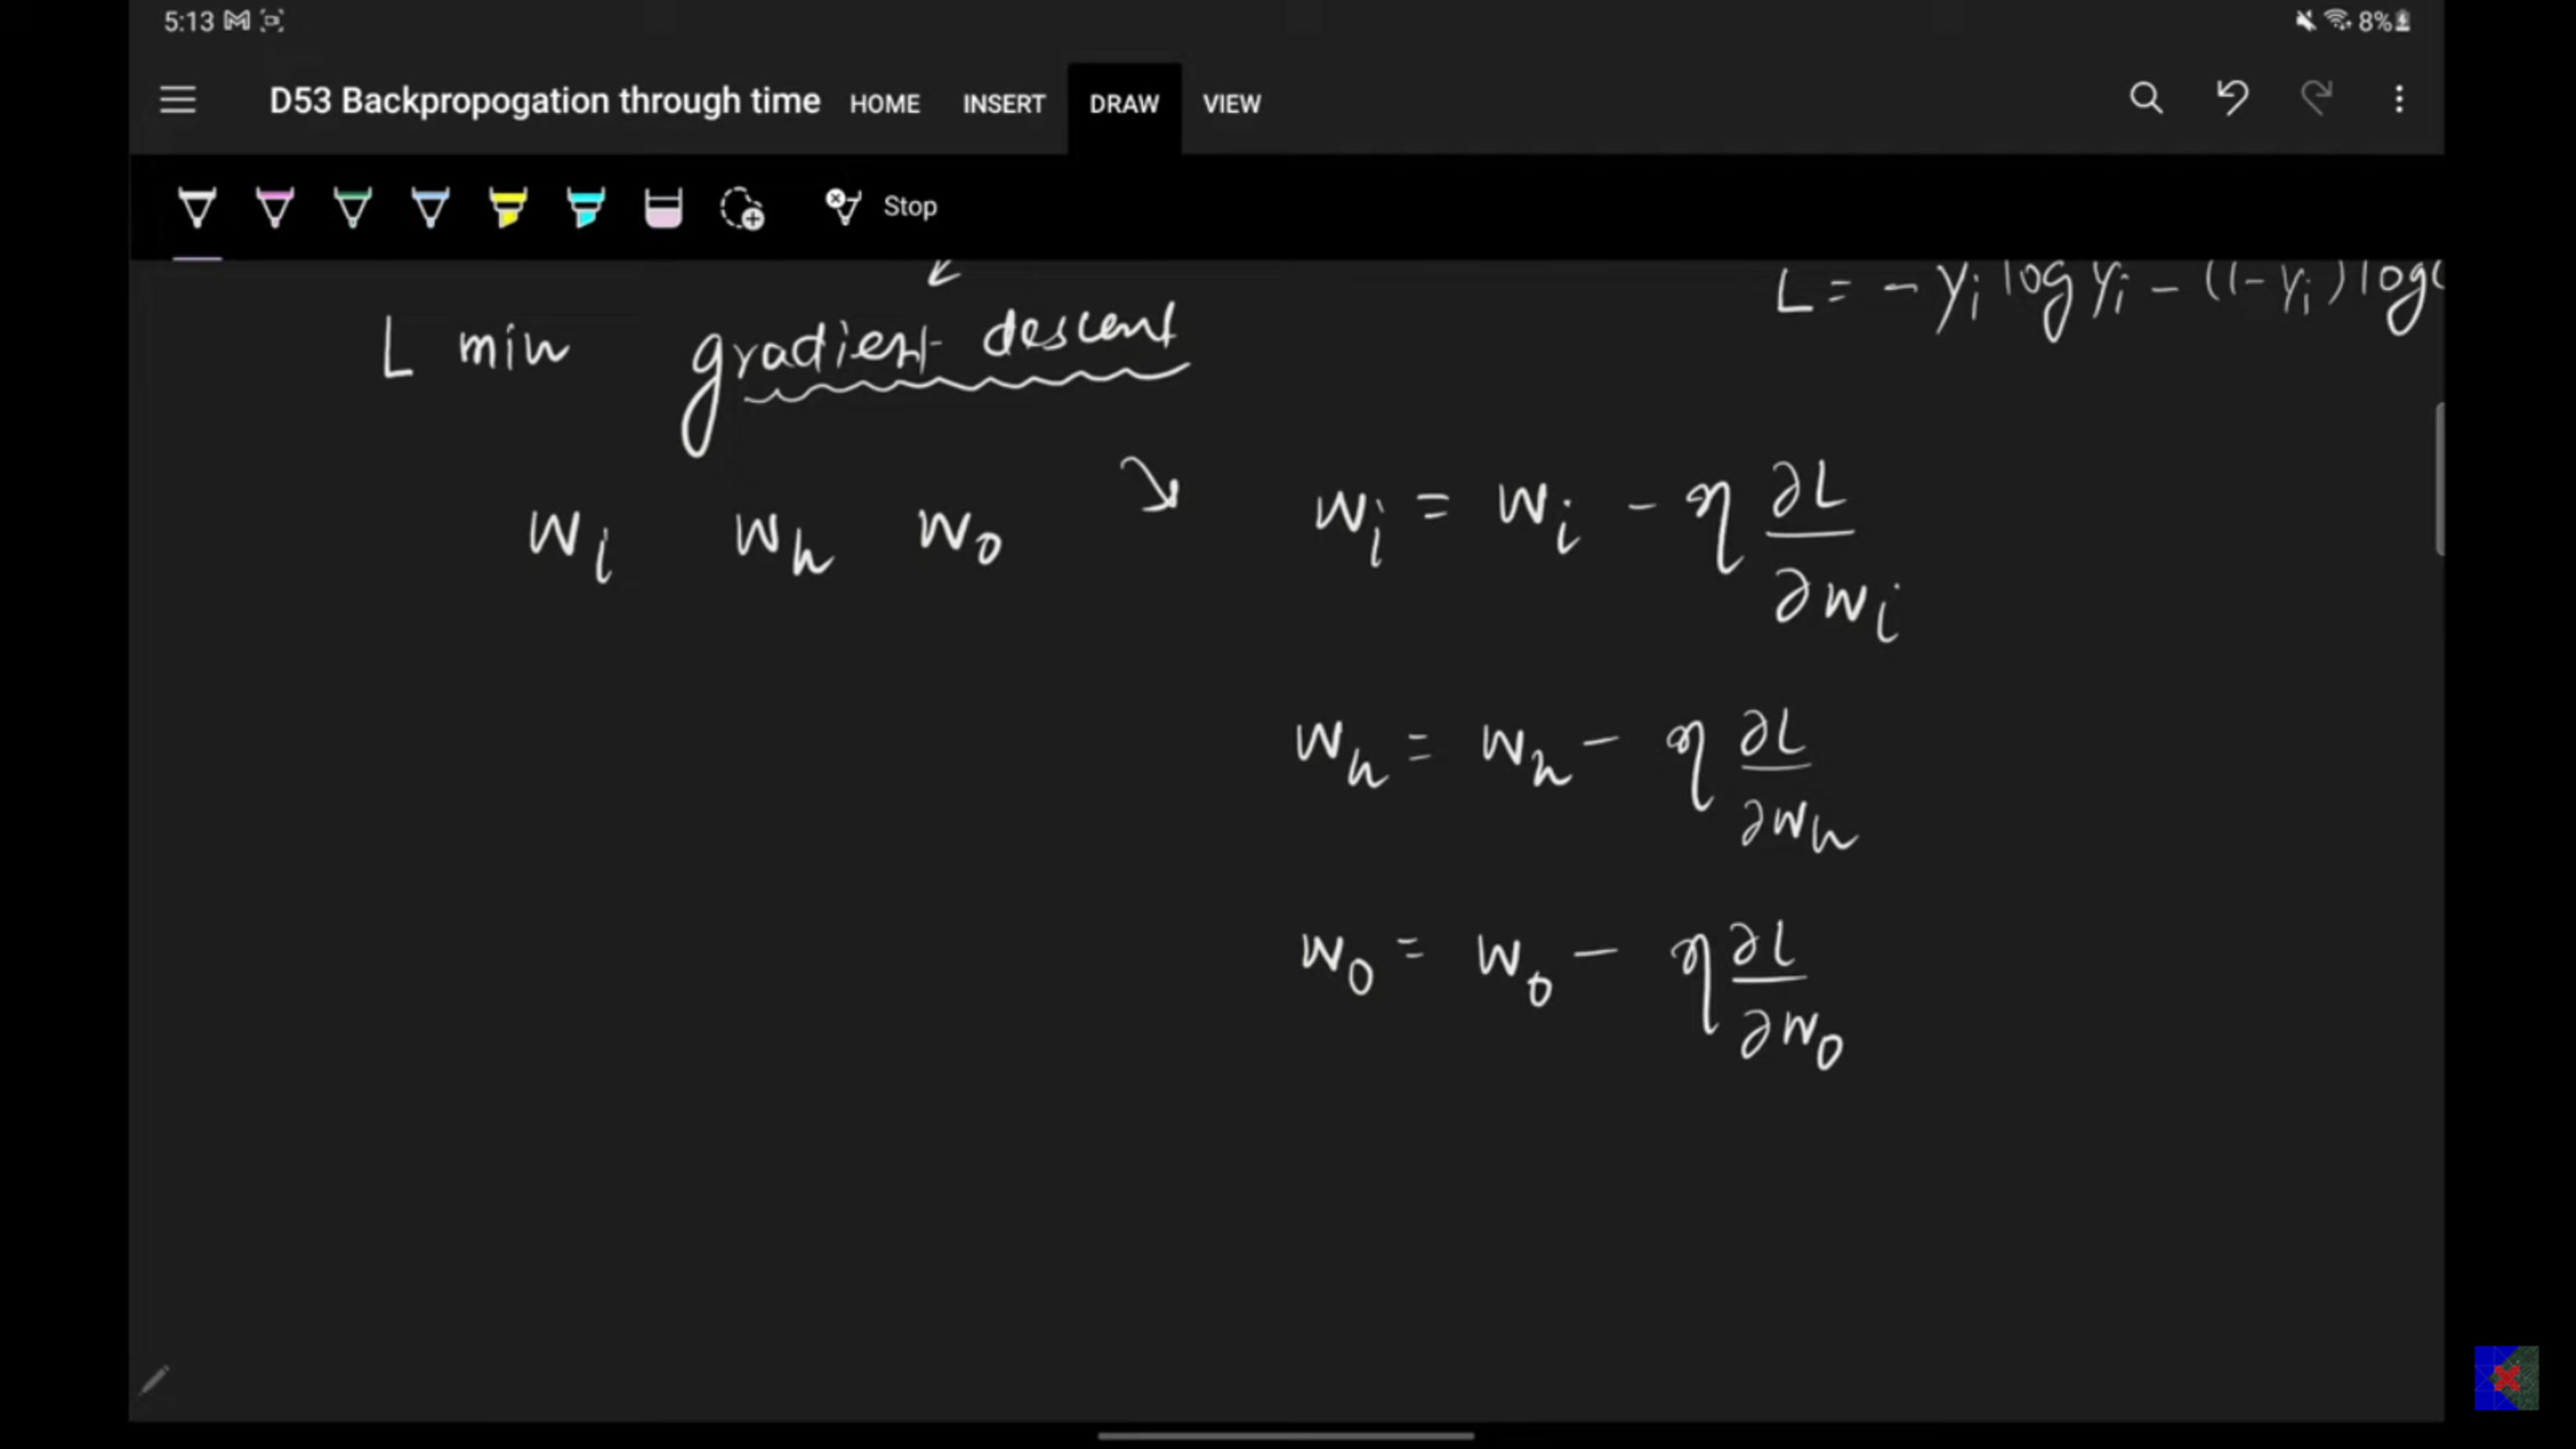 5:13 8%
D53 Backpropogation through time HOME INSERT DRAW VIEW
Stop
L = - yᵢ log yᵢ - (1 - yᵢ) log(
L min gradient descent
wᵢ wₕ w₀
wᵢ = wᵢ - η ∂L/∂wᵢ
wₕ = wₕ - η ∂L/∂wₕ
w₀ = w₀ - η ∂L/∂w₀